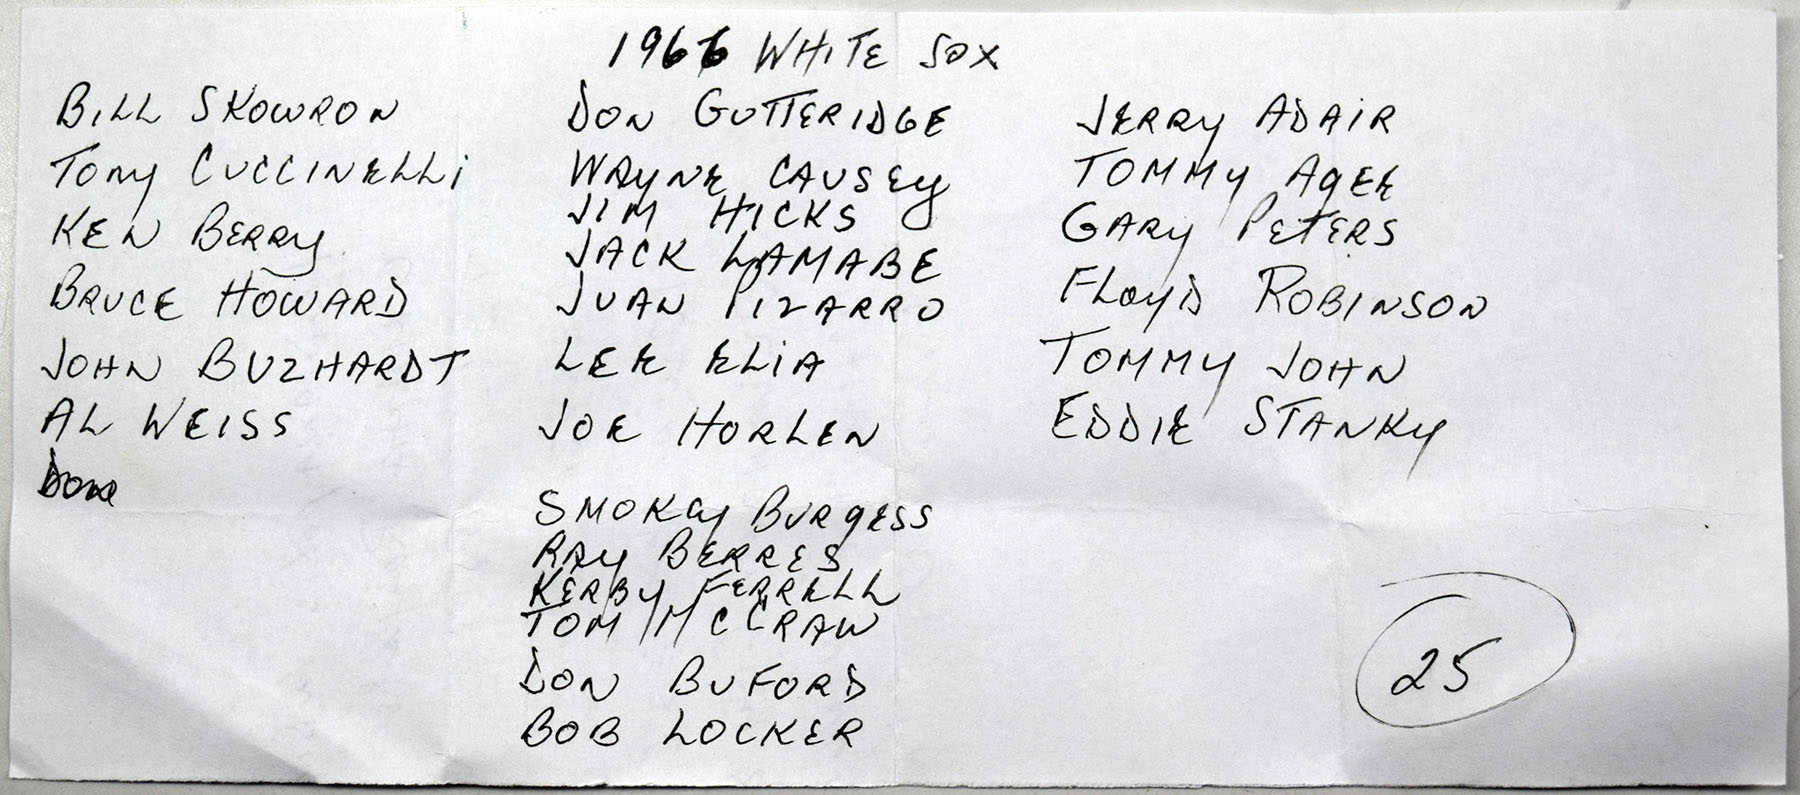 1966 WHITE SOX
BILL SKOWRON
TONY CUCCINELLI
KEN BERRY
BRUCE HOWARD
JOHN BUZHARDT
AL WEISS
DON GUTTERIDGE
WAYNE CAUSEY
JIM HICKS
JACK LAMABE
JUAN PIZARRO
LEE ELIA
JOE HORLEN
SMOKEY BURGESS
RAY BERRES
KERBY FERRELL
TOM MCCRAW
DON BUFORD
BOB LOCKER
JERRY ADAIR
TOMMY AGEE
GARY PETERS
FLOYD ROBINSON
TOMMY JOHN
EDDIE STANKY
25